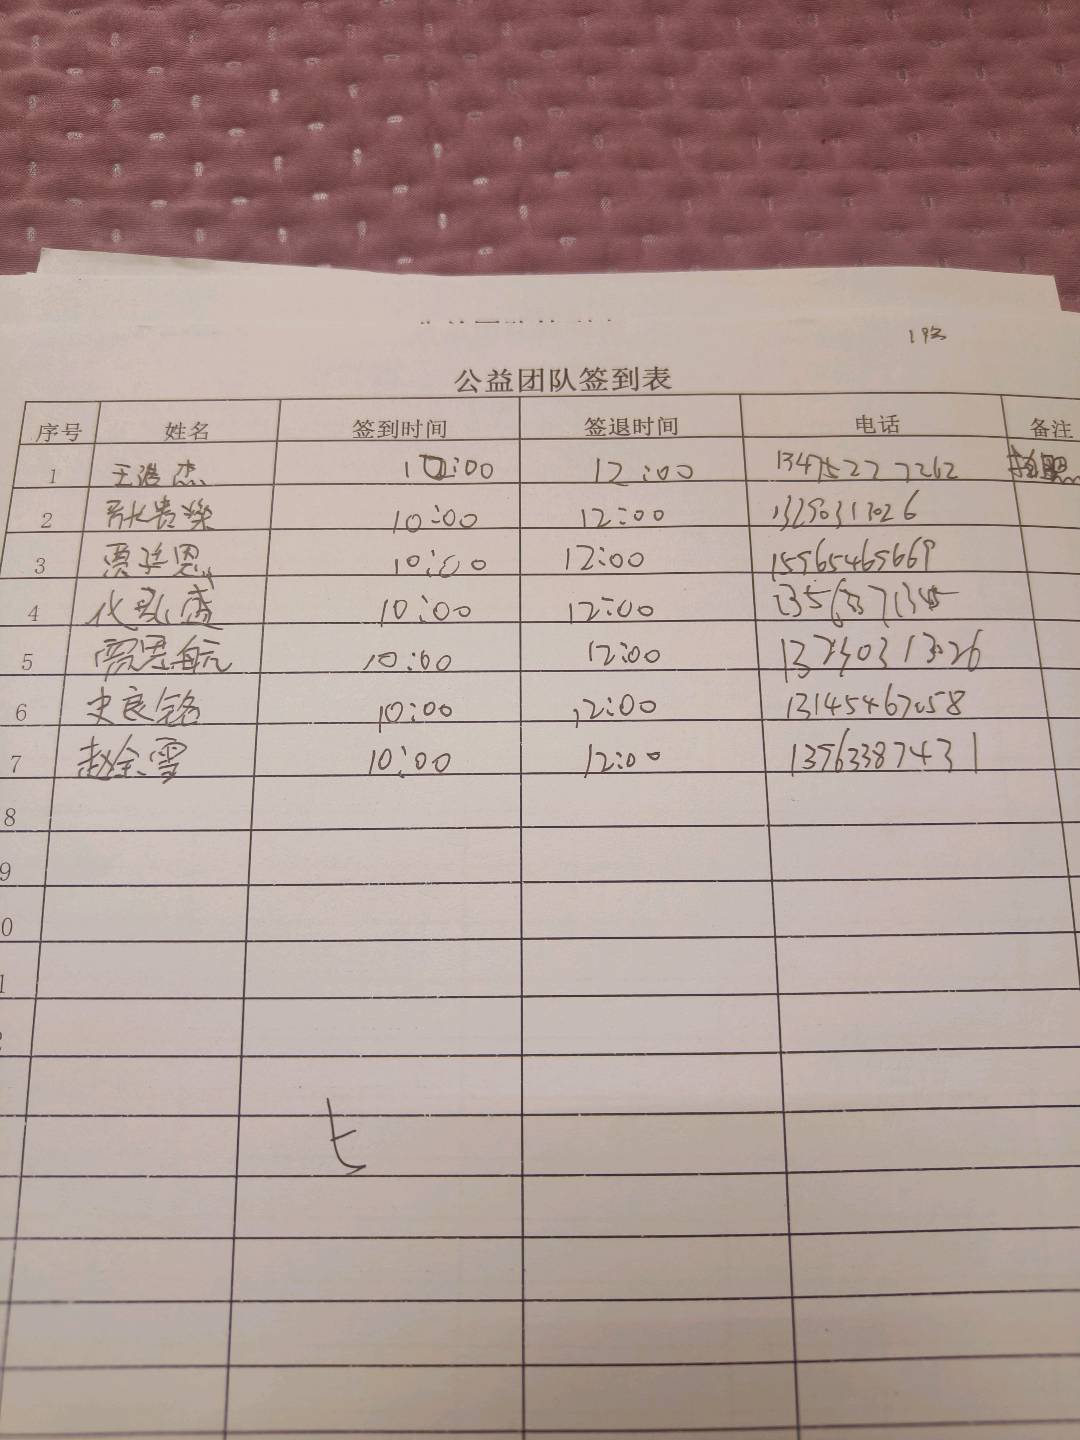 公益团队签到表
序号 姓名 签到时间 签退时间 电话 备注
1 王浩杰 10:00 12:00 13475227262
2 10:00 12:00 13290313026
3 贾华恩 10:00 12:00 15965465669
4 代弘盛 10:00 12:00
5 贾思航 10:00 12:00
6 史良铭 10:00 12:00 13145467058
7 赵余雪 10:00 12:00 13963387431
8
9
0
1
七